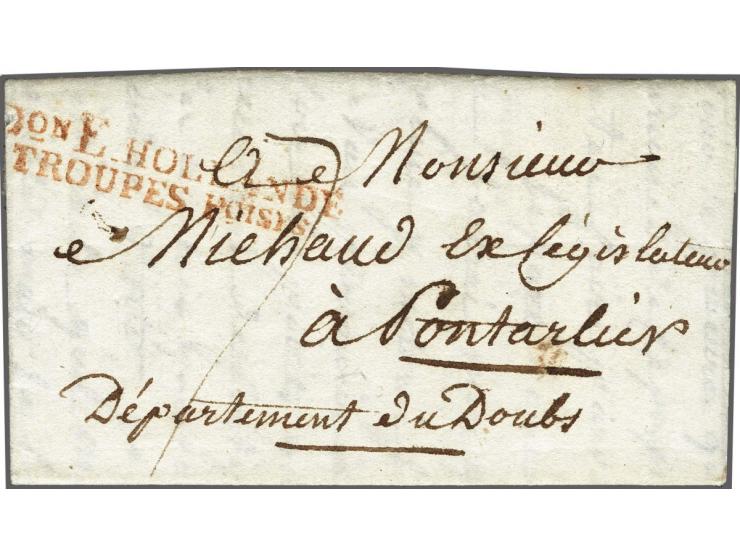 Don E. HOLLANDE
TROUPES POISES
A Monsieur
Michaud Ex Législateur
à Pontarlier
Département du Doubs